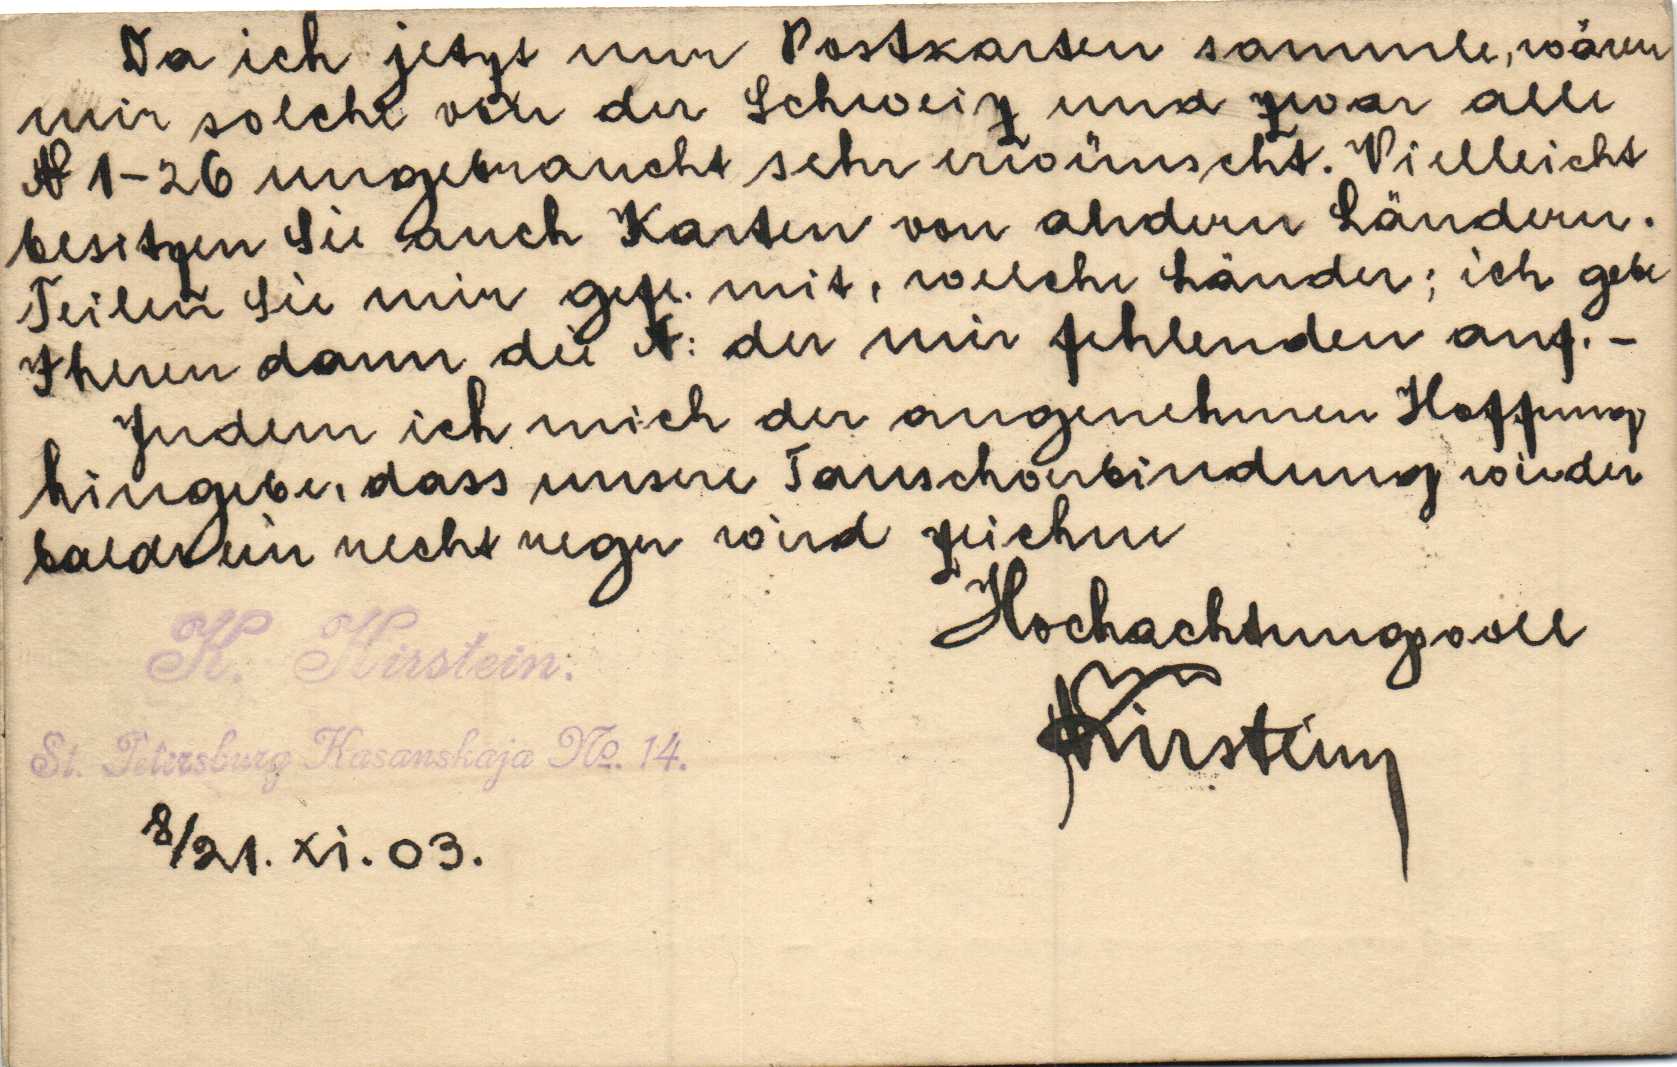 Da ich jetzt nur Postkarten sammle, wären
mir solche von der Schweiz und zwar alle
№ 1-26 ungebraucht sehr erwünscht. Vielleicht
besitzen Sie auch Karten von andern Ländern.
Teilen Sie mir gefl. mit, welche Länder; ich gebe
Ihnen dann die №: der mir fehlenden auf. -
Indem ich mich der angenehmen Hoffnung
hingebe, dass unsere Tauschverbindung wieder
bald ein recht reger wird zeichne
Hochachtungsvoll
K. Kirstein.
Kirstein
St. Petersburg Kasanskaja No. 14.
8/21. XI. 03.